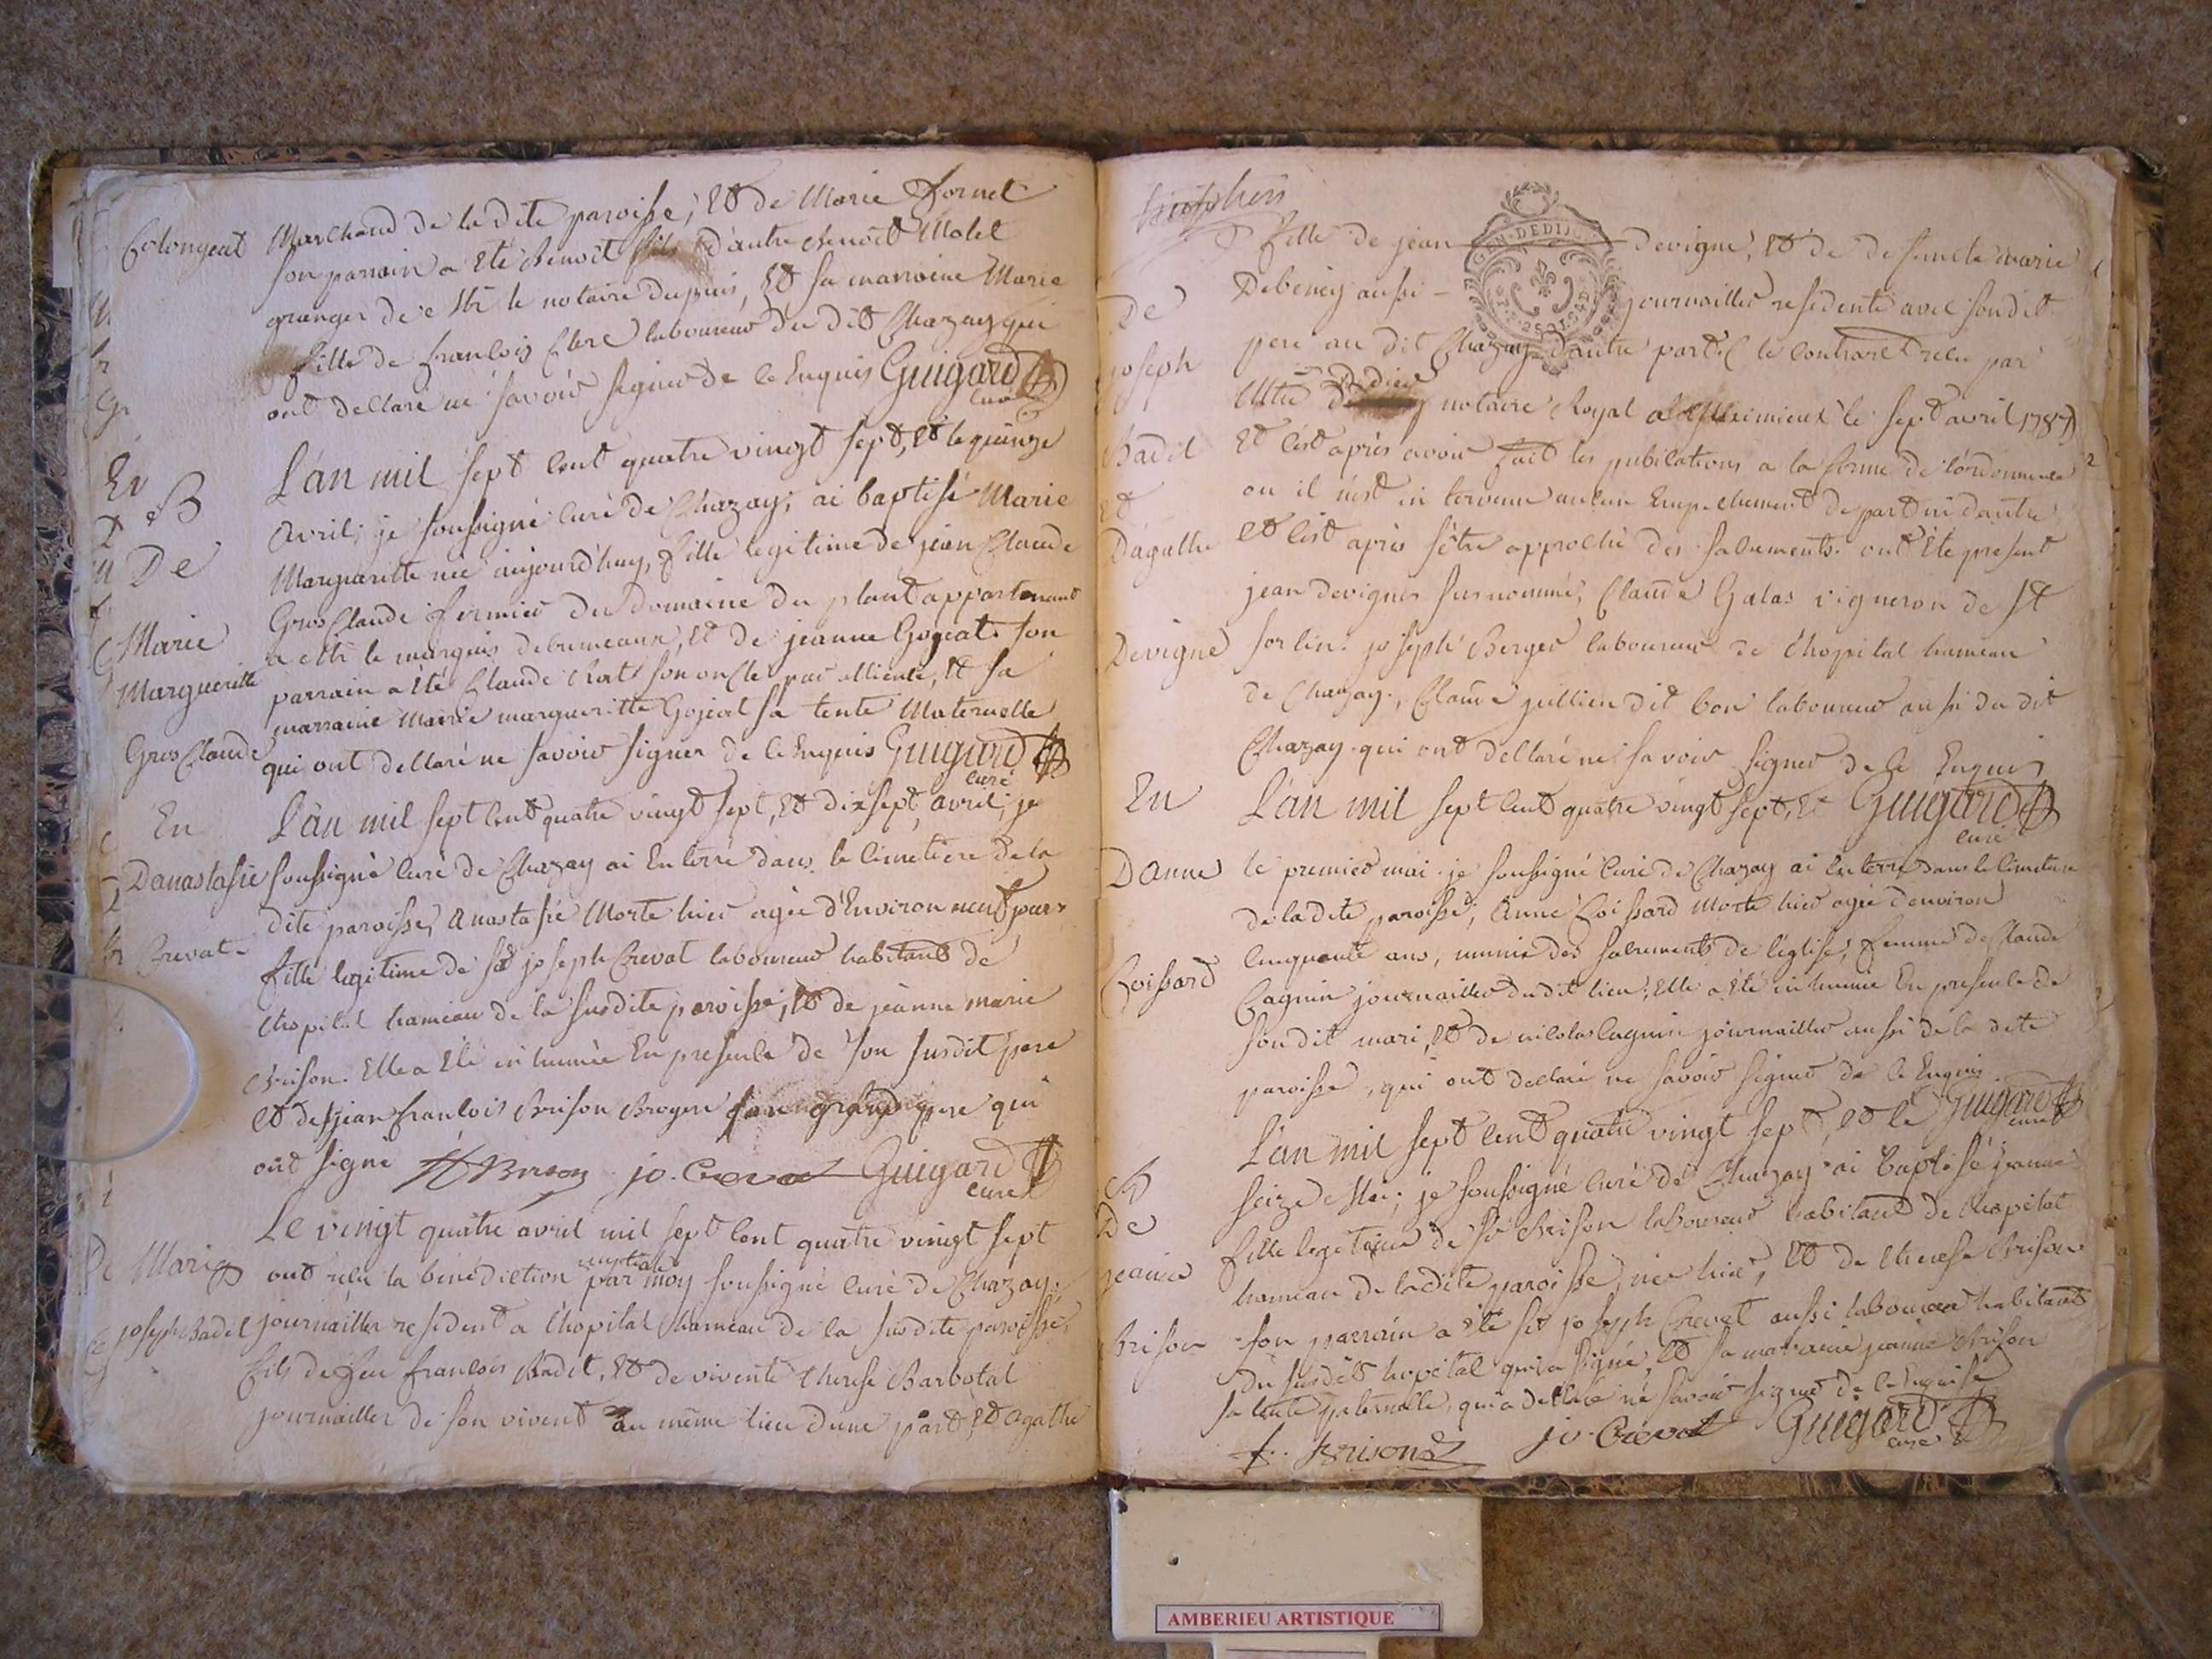 Colongeat
Marchand de la dite paroisse, et de Marie fornet
son parrain a été Benoit fils d'autre Benoît Molet
granger de Mr le notaire dupuis, et sa marraine Marie
fille de françois Clerc laboureur du dit Chazay qui
ont declaré ne savoir signer de ce Enquis Guigard
curé
B
De
Marie
Margueritte
Gros Claude
L'an mil sept cent quatre vingt sept, et le quinze
avril; je soussigné curé de Chazay, ai baptisé Marie
Margueritte née aujourd'huy, fille legitime de jean Claude
Gros Claude fermier du Domaine du plant appartenant
a Mr le marquis debrumeaux, et de jeanne Gogeat. son
parrain a été Claude son oncle par allience, et sa
marraine Marie margueritte Gojeat sa tente Maternelle
qui ont declaré ne savoir signer de ce Enquis Guigard
curé
En
Danastasie
Crevat
L'an mil sept cent quatre vingt sept, et dixsept avril; je
soussigné curé de Chazay ai Enterré dans le Cimetiere de la
dite paroisse, Anastasie Morte hier agée d'Environ neuf jours
fille legitime de sr joseph Crevat laboureur habitant de
l'hopital hameau de la susdite paroisse, et de jeanne marie
Brison. Elle a été inhumée En presence de son susdit pere
et de jean françois Brison Broyeur son grand pere qui
ont signé Brison jo. Crevat Guigard
curé
Mari
joseph Badet
Le vingt quatre avril mil sept cent quatre vingt sept
ont reçu la bénédiction nuptiale par moy soussigné curé de Chazay.
journaillier resident a l'hopital hameau de la susdite paroisse,
fils de feu françois Badet, et de vivente therese Barbotat
journaillier de son vivent au même lieu d'une part et Agathe
De
joseph
Badet
et
Dagathe
Devigne
fille de jean devigne, et de defuncte marie
Debeney aussi journaillier residente avec son dit
pere au dit Chazay d'autre part. le contract reçu par
Mtre notaire Royal a Meximieux le sept avril 1787
et c'est après avoir fait les publications a la forme de l'ordonnance
ou il n'est intervenu aucun Empechement de part ni d'autre
et c'est après s'être approché des sacrements. ont été present
jean devignes susnommé, Claude Galas vigneron de St
sorlin. joseph Berger laboureur de l'hopital hameau
de Chazay., Claude jullien dit bon laboureur aussi du dit
Chazay. qui ont déclaré ne savoir signer de ce Enquis
Guigard
curé
En
Danne
Coissard
L'an mil sept cent quatre vingt sept, et
le premier mai. je soussigné curé de Chazay ai Enterré dans le Cimetiere
de la dite paroisse, Anne Coissard Morte hier agée d'environ
cinquante ans, munie des sacrements de l'église, femme de Claude
Cagnin journaillier du dit lieu; Elle a été inhumée En presence de
son dit mari, et de nicolas Cagnin journaillier aussi de la dite
paroisse, qui ont declaré ne savoir signer de ce Enquis
Guigard
curé
B
De
jeanne
Brison
L'an mil sept cent quatre vingt sept, et le
seize Mai; je soussigné curé de Chazay ai baptisé jeanne
fille legetime de sr Brison laboureur habitant de l'hopital
hameau de la dite paroisse, née hier, et de therese Brison
son parrain a été sr joseph Crevat aussi laboureur habitant
du susdit hopital qui a signé, et sa marraine jeanne Brison
sa tente paternelle, qui a declaré ne savoir signer de ce Enquise
f. Brison jo. Crevat Guigard
curé
AMBERIEU ARTISTIQUE